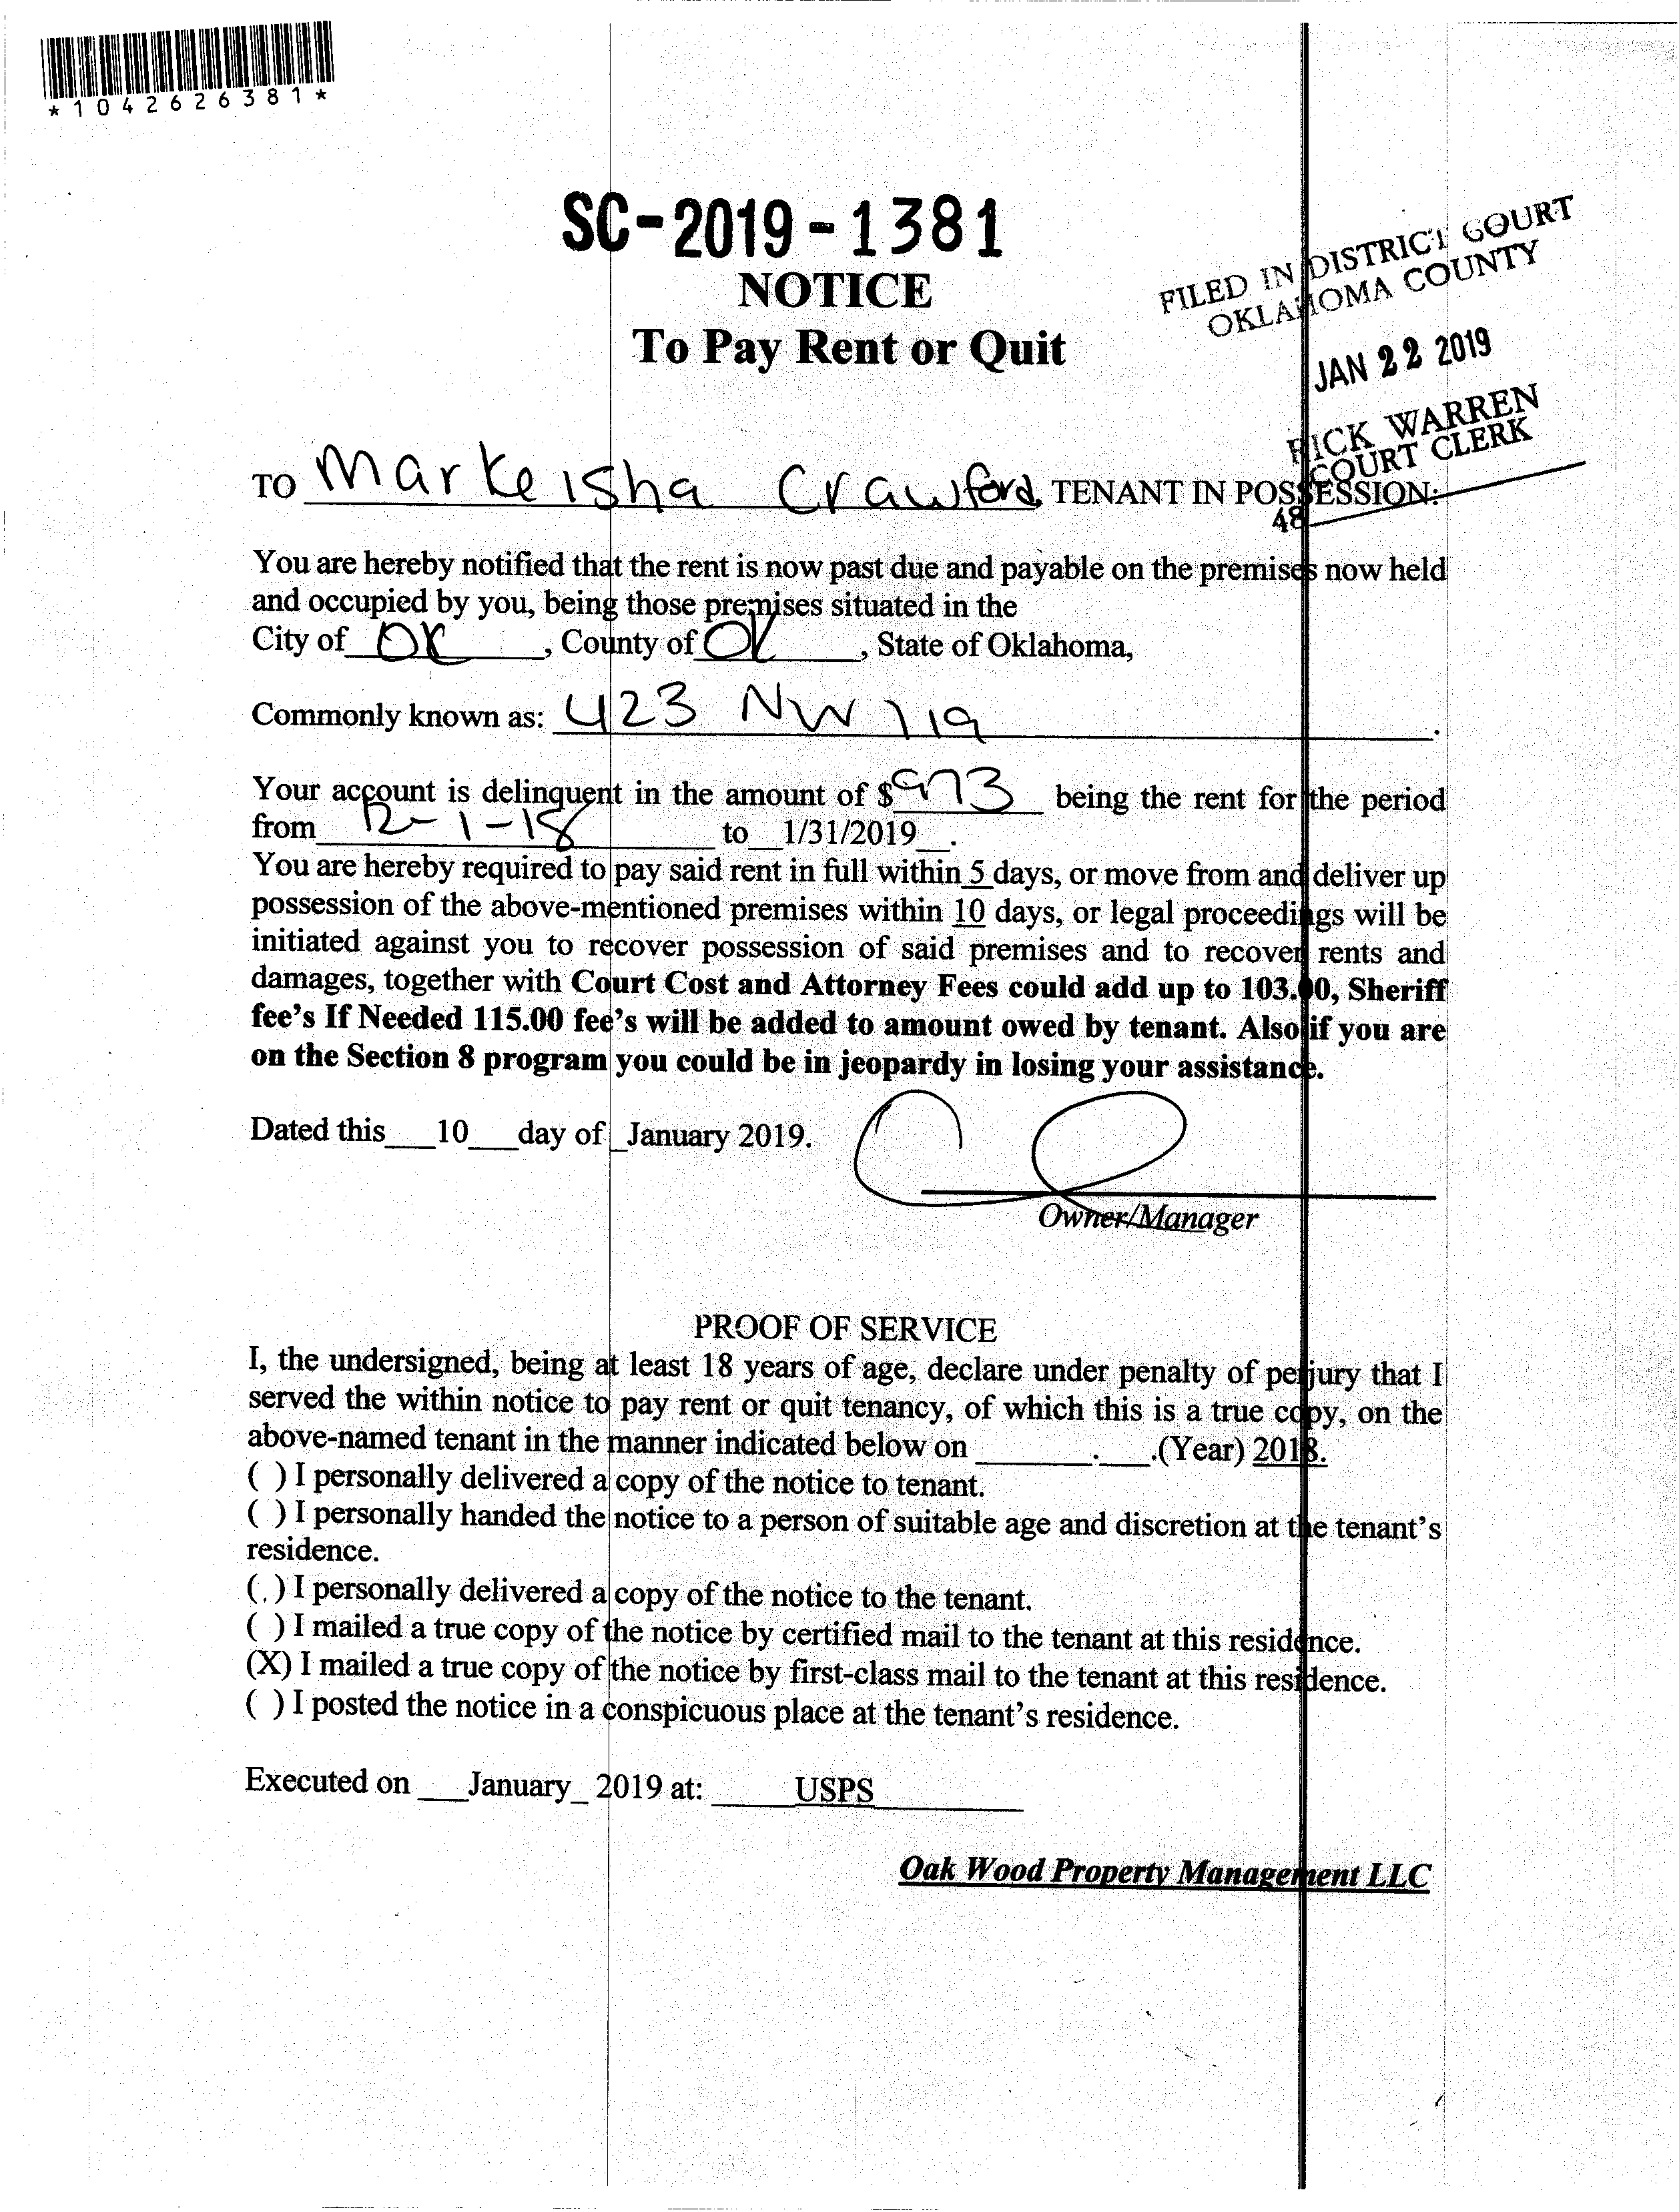 *1042626381*
SC-2019-1381
NOTICE
To Pay Rent or Quit
FILED IN DISTRICT COURT
OKLAHOMA COUNTY
JAN 22 2019
RICK WARREN
COURT CLERK
48
TO Markeisha Crawford, TENANT IN POSSESSION:
You are hereby notified that the rent is now past due and payable on the premises now held
and occupied by you, being those premises situated in the
City of OK, County of OK, State of Oklahoma,
Commonly known as: 423 NW 119.
Your account is delinquent in the amount of $973 being the rent for the period
from 12-1-18 to 1/31/2019.
You are hereby required to pay said rent in full within 5 days, or move from and deliver up
possession of the above-mentioned premises within 10 days, or legal proceedings will be
initiated against you to recover possession of said premises and to recover rents and
damages, together with Court Cost and Attorney Fees could add up to 103.00, Sheriff
fee's If Needed 115.00 fee's will be added to amount owed by tenant. Also if you are
on the Section 8 program you could be in jeopardy in losing your assistance.
Dated this 10 day of January 2019.
Owner/Manager
PROOF OF SERVICE
I, the undersigned, being at least 18 years of age, declare under penalty of perjury that I
served the within notice to pay rent or quit tenancy, of which this is a true copy, on the
above-named tenant in the manner indicated below on ______.___.(Year) 2018.
( ) I personally delivered a copy of the notice to tenant.
( ) I personally handed the notice to a person of suitable age and discretion at the tenant's
residence.
( ) I personally delivered a copy of the notice to the tenant.
( ) I mailed a true copy of the notice by certified mail to the tenant at this residence.
(X) I mailed a true copy of the notice by first-class mail to the tenant at this residence.
( ) I posted the notice in a conspicuous place at the tenant's residence.
Executed on ___January_ 2019 at: USPS
Oak Wood Property Management LLC